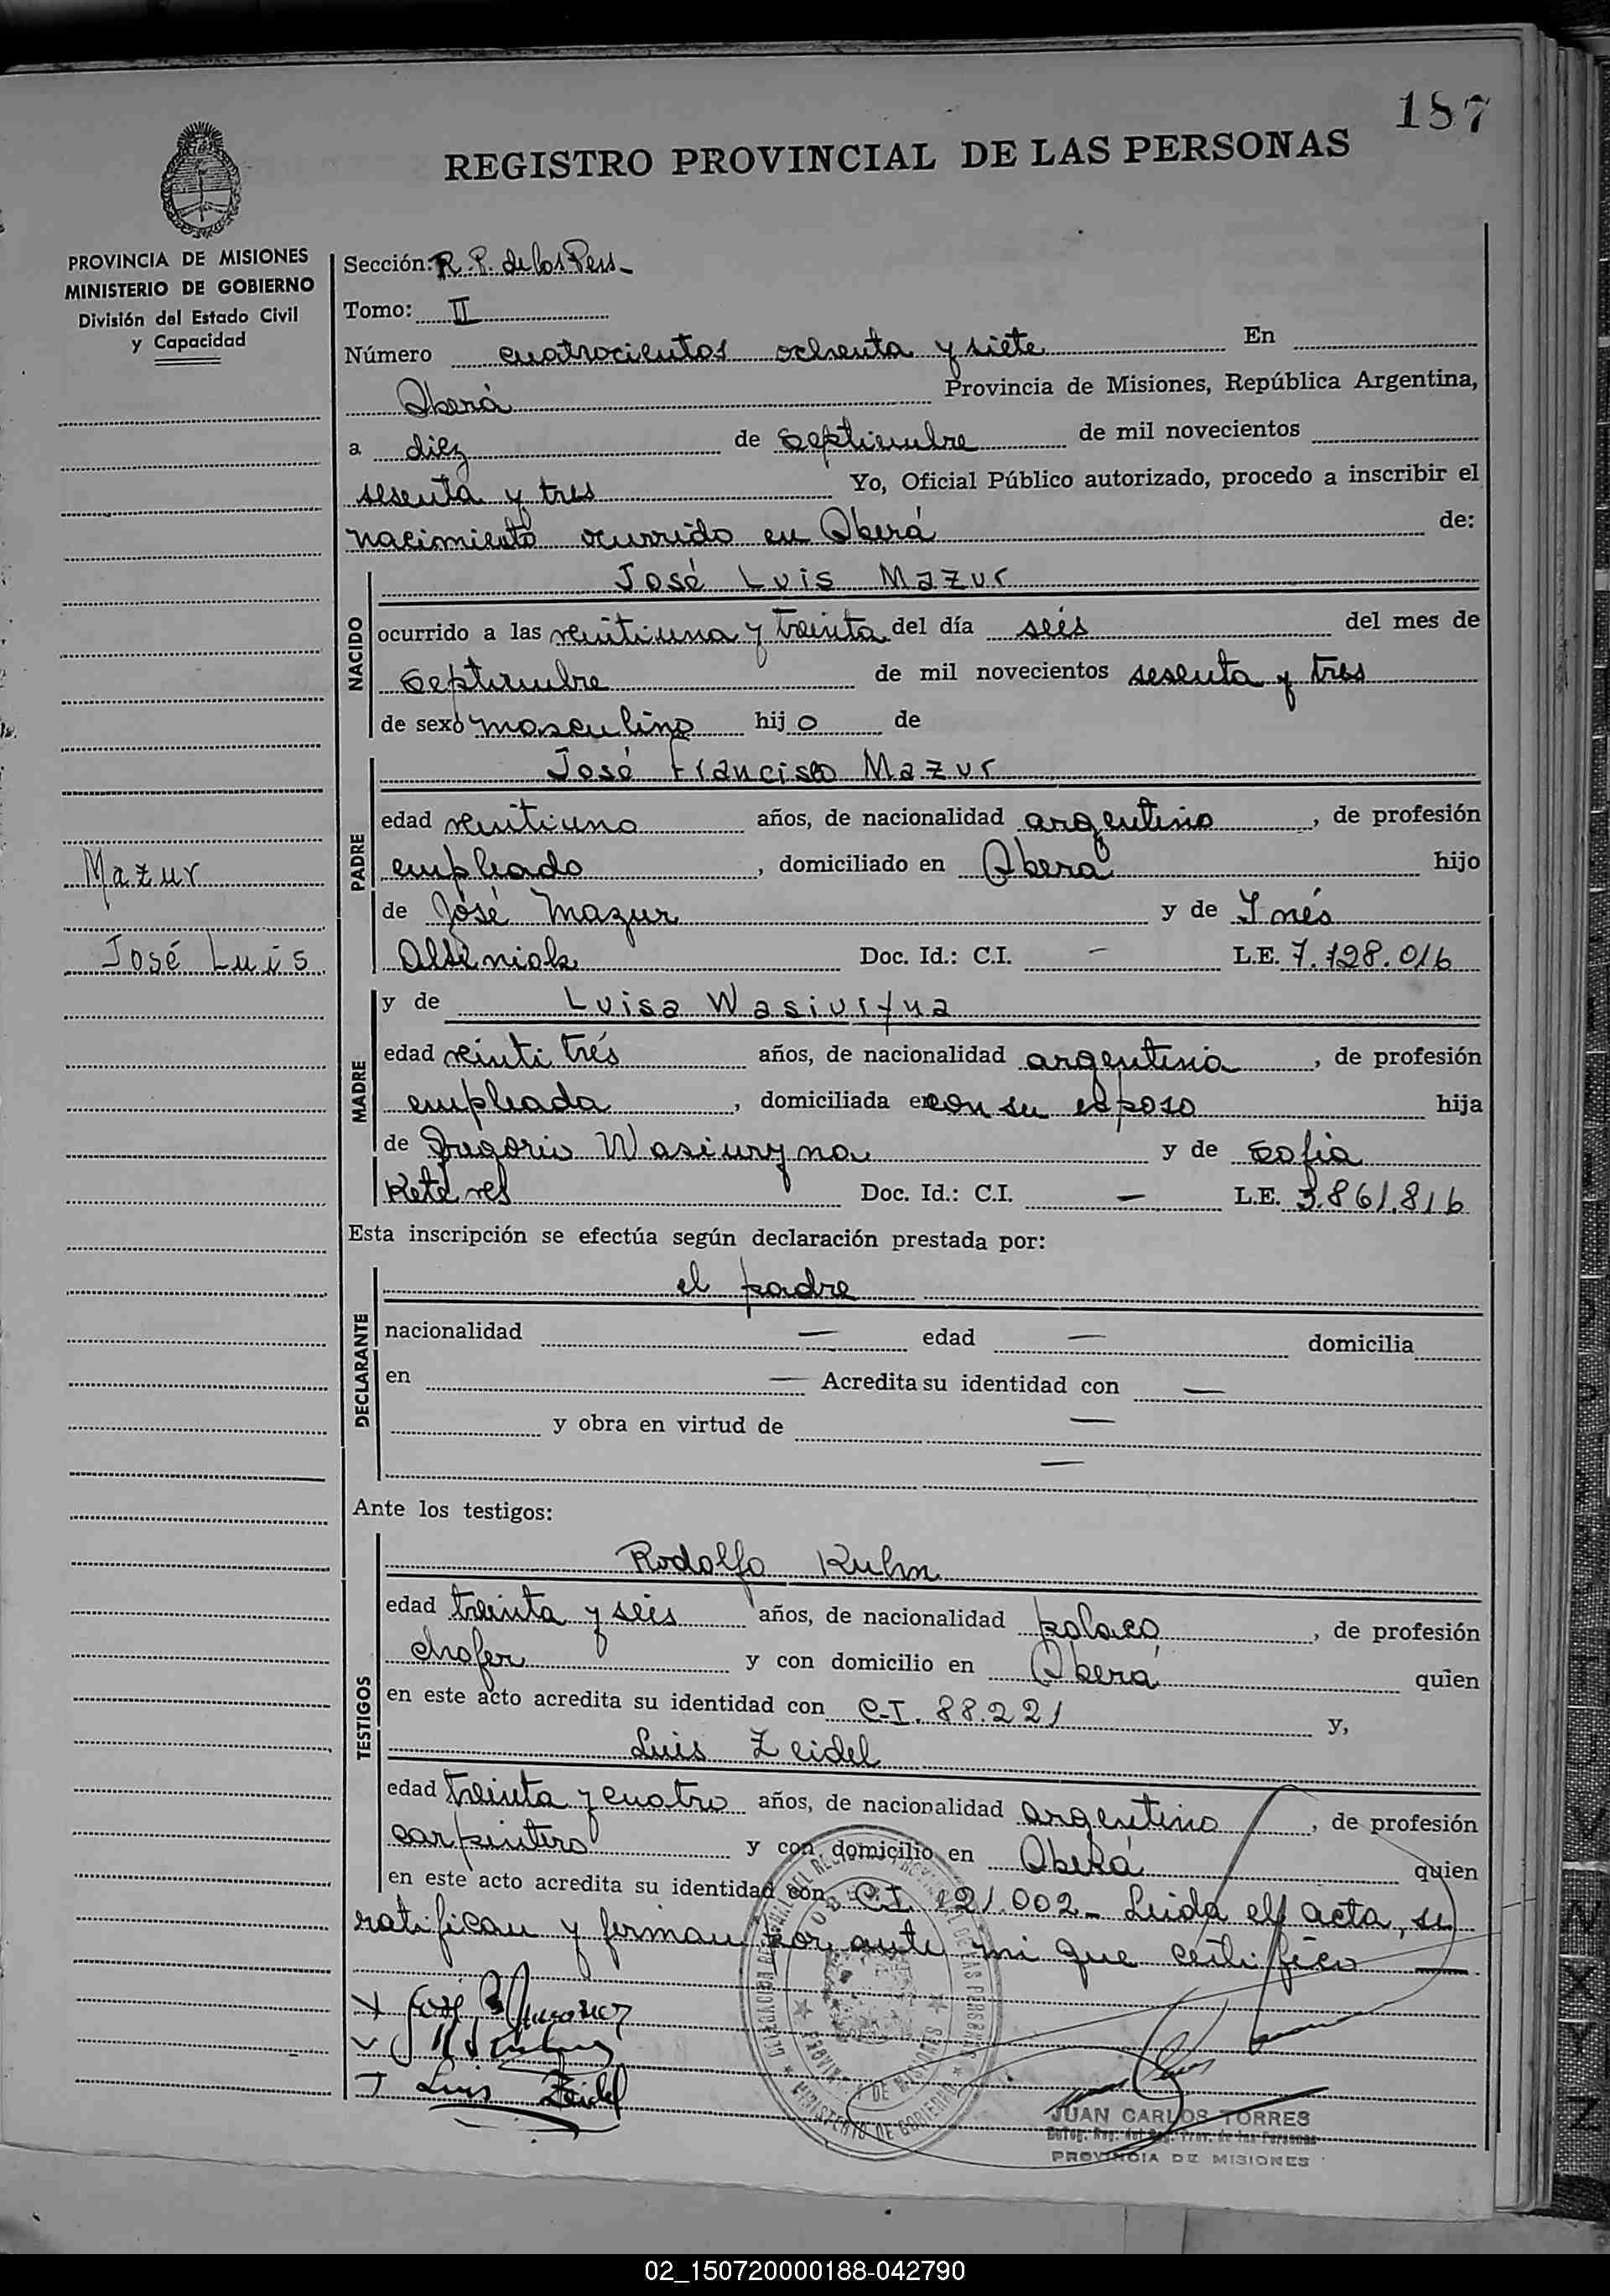 187
REGISTRO PROVINCIAL DE LAS PERSONAS
PROVINCIA DE MISIONES
MINISTERIO DE GOBIERNO
División del Estado Civil
y Capacidad
Mazur
José Luis
Sección: R. P. de las Pers.
Tomo: II
Número cuatrocientos ochenta y siete En
Oberá Provincia de Misiones, República Argentina,
a diez de septiembre de mil novecientos
sesenta y tres Yo, Oficial Público autorizado, procedo a inscribir el
nacimiento ocurrido en Oberá de:
NACIDO
José Luis Mazur
ocurrido a las veintiuna y treinta del día seis del mes de
septiembre de mil novecientos sesenta y tres
de sexo masculino hijo de
PADRE
José Francisco Mazur
edad veintiuno años, de nacionalidad argentino, de profesión
empleado, domiciliado en Oberá hijo
de José Mazur y de Inés
Doc. Id.: C.I. — L.E. 7.128.016
MADRE
y de Luisa Wasiuryna
edad veinti trés años, de nacionalidad argentina, de profesión
empleada, domiciliada en con su esposo hija
de Gregorio Wasiuryna y de Sofia
Doc. Id.: C.I. — L.E. 3.861.816
Esta inscripción se efectúa según declaración prestada por:
DECLARANTE
el padre
nacionalidad — edad — domicilia
en — Acredita su identidad con —
y obra en virtud de —
—
Ante los testigos:
TESTIGOS
Rodolfo Kuhn
edad treinta y seis años, de nacionalidad polaco, de profesión
chofer y con domicilio en Oberá quien
en este acto acredita su identidad con C.I. 88.221 y,
Luis Zeidel
edad treinta y cuatro años, de nacionalidad argentino, de profesión
carpintero y con domicilio en Oberá quien
en este acto acredita su identidad con C.I. 121.002 - Leida el acta, se
ratifican y firman por ante mi que certifico —
Luis Zeidel
MINISTERIO DE GOBIERNO
JUAN CARLOS TORRES
PROVINCIA DE MISIONES
02_150720000188-042790